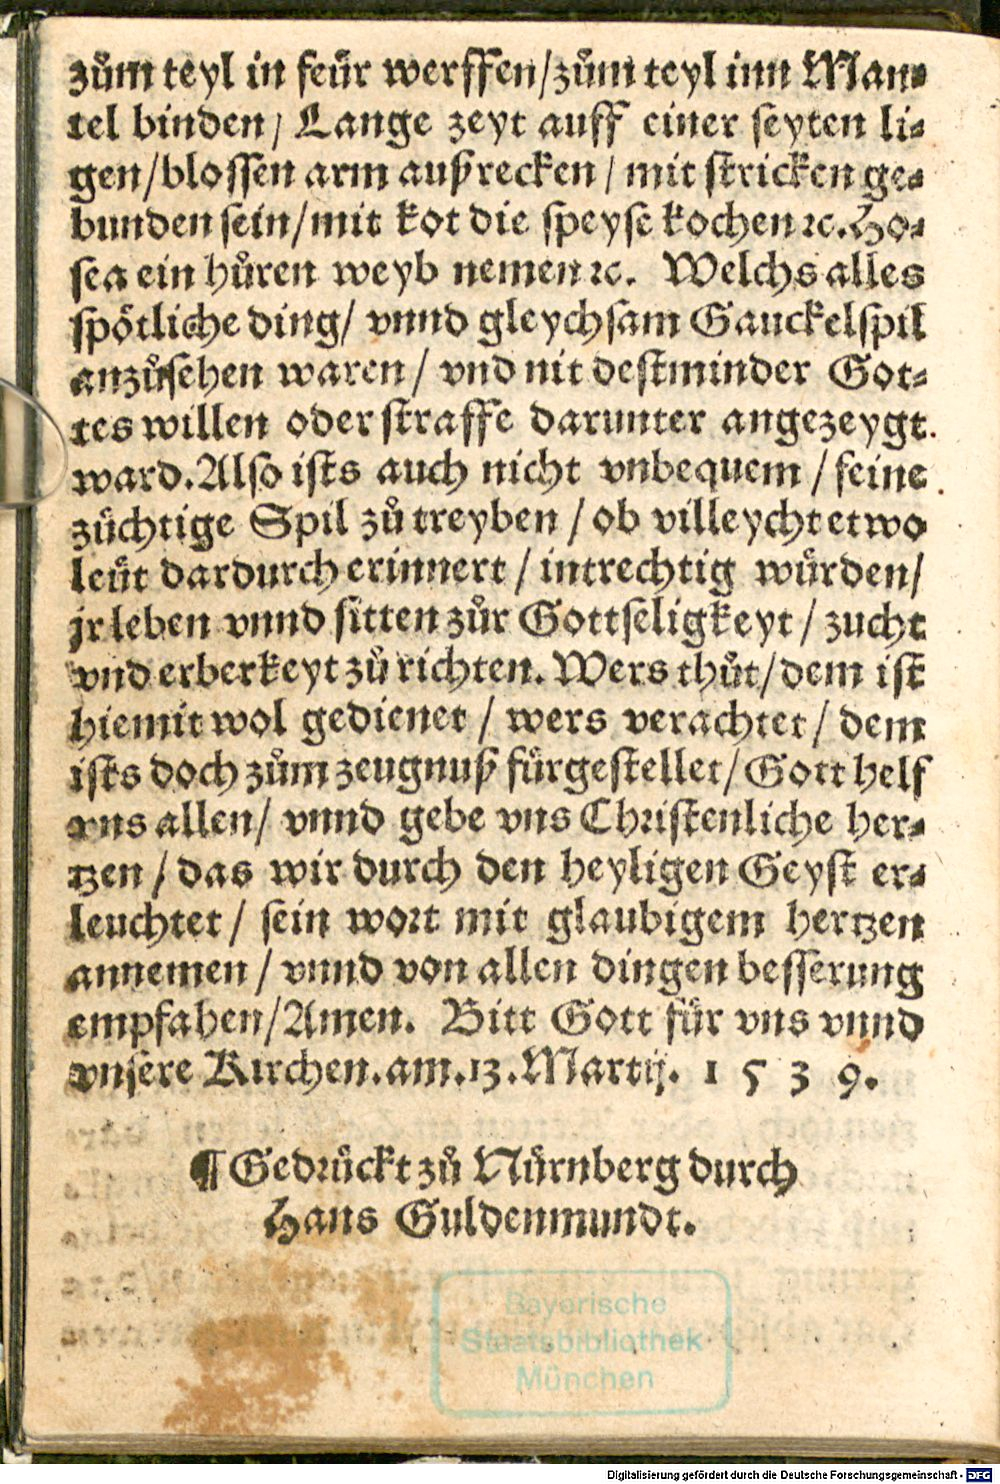 zům teyl in feür werffen/zům teyl inn Man⸗
tel binden/ Lange zeyt auff einer seyten li⸗
gen/blossen arm außrecken/ mit stricken ge⸗
bunden sein/mit kot die speyse kochen ꝛc. Ho⸗
sea ein hůren weyb nemen ꝛc. Welchs alles
spötliche ding/ vnnd gleychsam Gauckelspil
anzůsehen waren/ vnd nit destminder Got⸗
tes willen oder straffe darunter angezeygt
ward. Also ists auch nicht vnbequem/ feine
züchtige Spil zů treyben/ ob villeycht etwo
leüt dardurch erinnert/ intrechtig würden/
jr leben vnnd sitten zůr Gottseligkeyt/ zucht
vnd erberkeyt zů richten. Wers thůt/dem ist
hiemit wol gedienet/ wers verachtet/ dem
ists doch zům zeugnuß fürgestellet/Gott helf
vns allen/ vnnd gebe vns Christenliche her⸗
tzen/ das wir durch den heyligen Geyst er⸗
leuchtet/ sein wort mit glaubigem hertzen
annemen/ vnnd von allen dingen besserung
empfahen/Amen. Bitt Gott für vns vnnd
vnsere Kirchen. am. 13. Martij. 1 5 3 9.
¶ Gedrückt zů Nürnberg durch
Hans Guldenmundt.
Bayerische
Staatsbibliothek
München
Digitalisierung gefördert durch die Deutsche Forschungsgemeinschaft - DFG